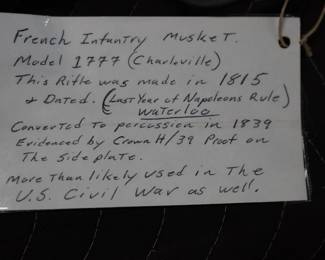 French Infantry Musket.
Model 1777 (Charleville)
This Rifle was made in 1815
& Dated. (Last Year of Napoleons Rule)
Waterloo
Converted to percussion in 1839
Evidenced by Crown H/39 Proof on
The side plate.
More Than likely used in The
U.S. Civil War as well.